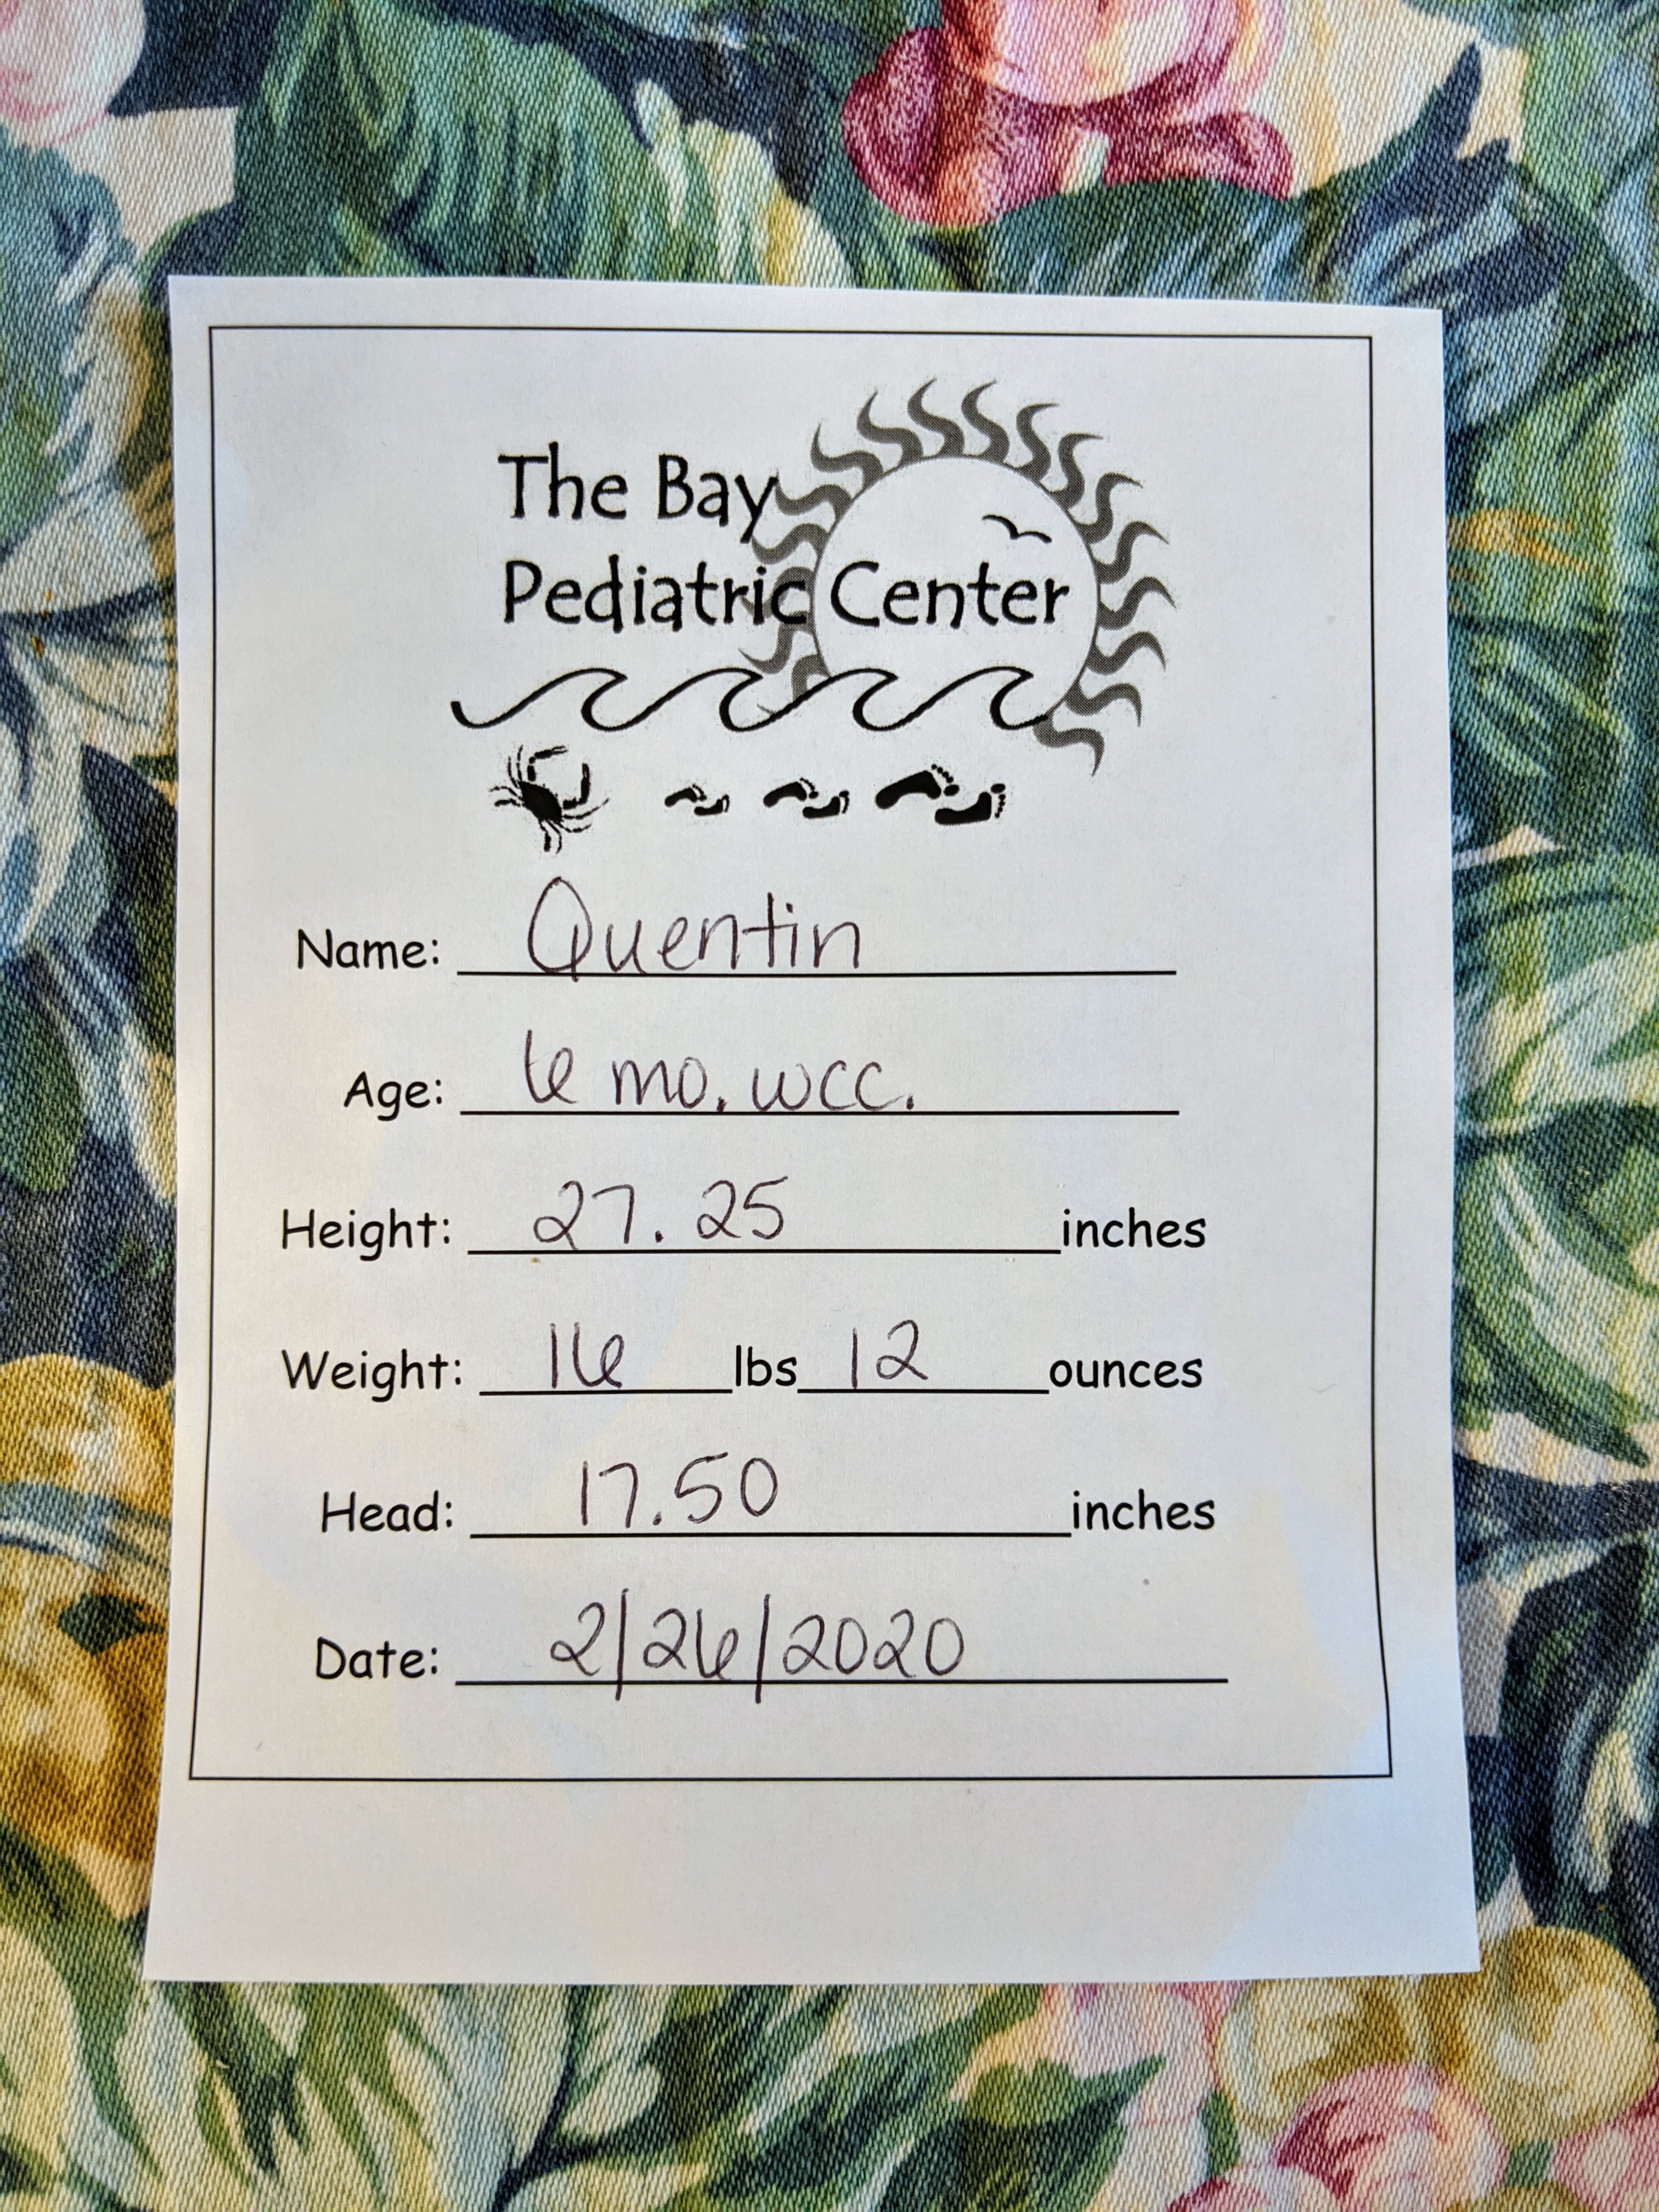 The Bay
Pediatric Center
Name: Quentin
Age: 6 mo. wcc.
Height: 27.25 inches
Weight: 16 lbs 12 ounces
Head: 17.50 inches
Date: 2/26/2020